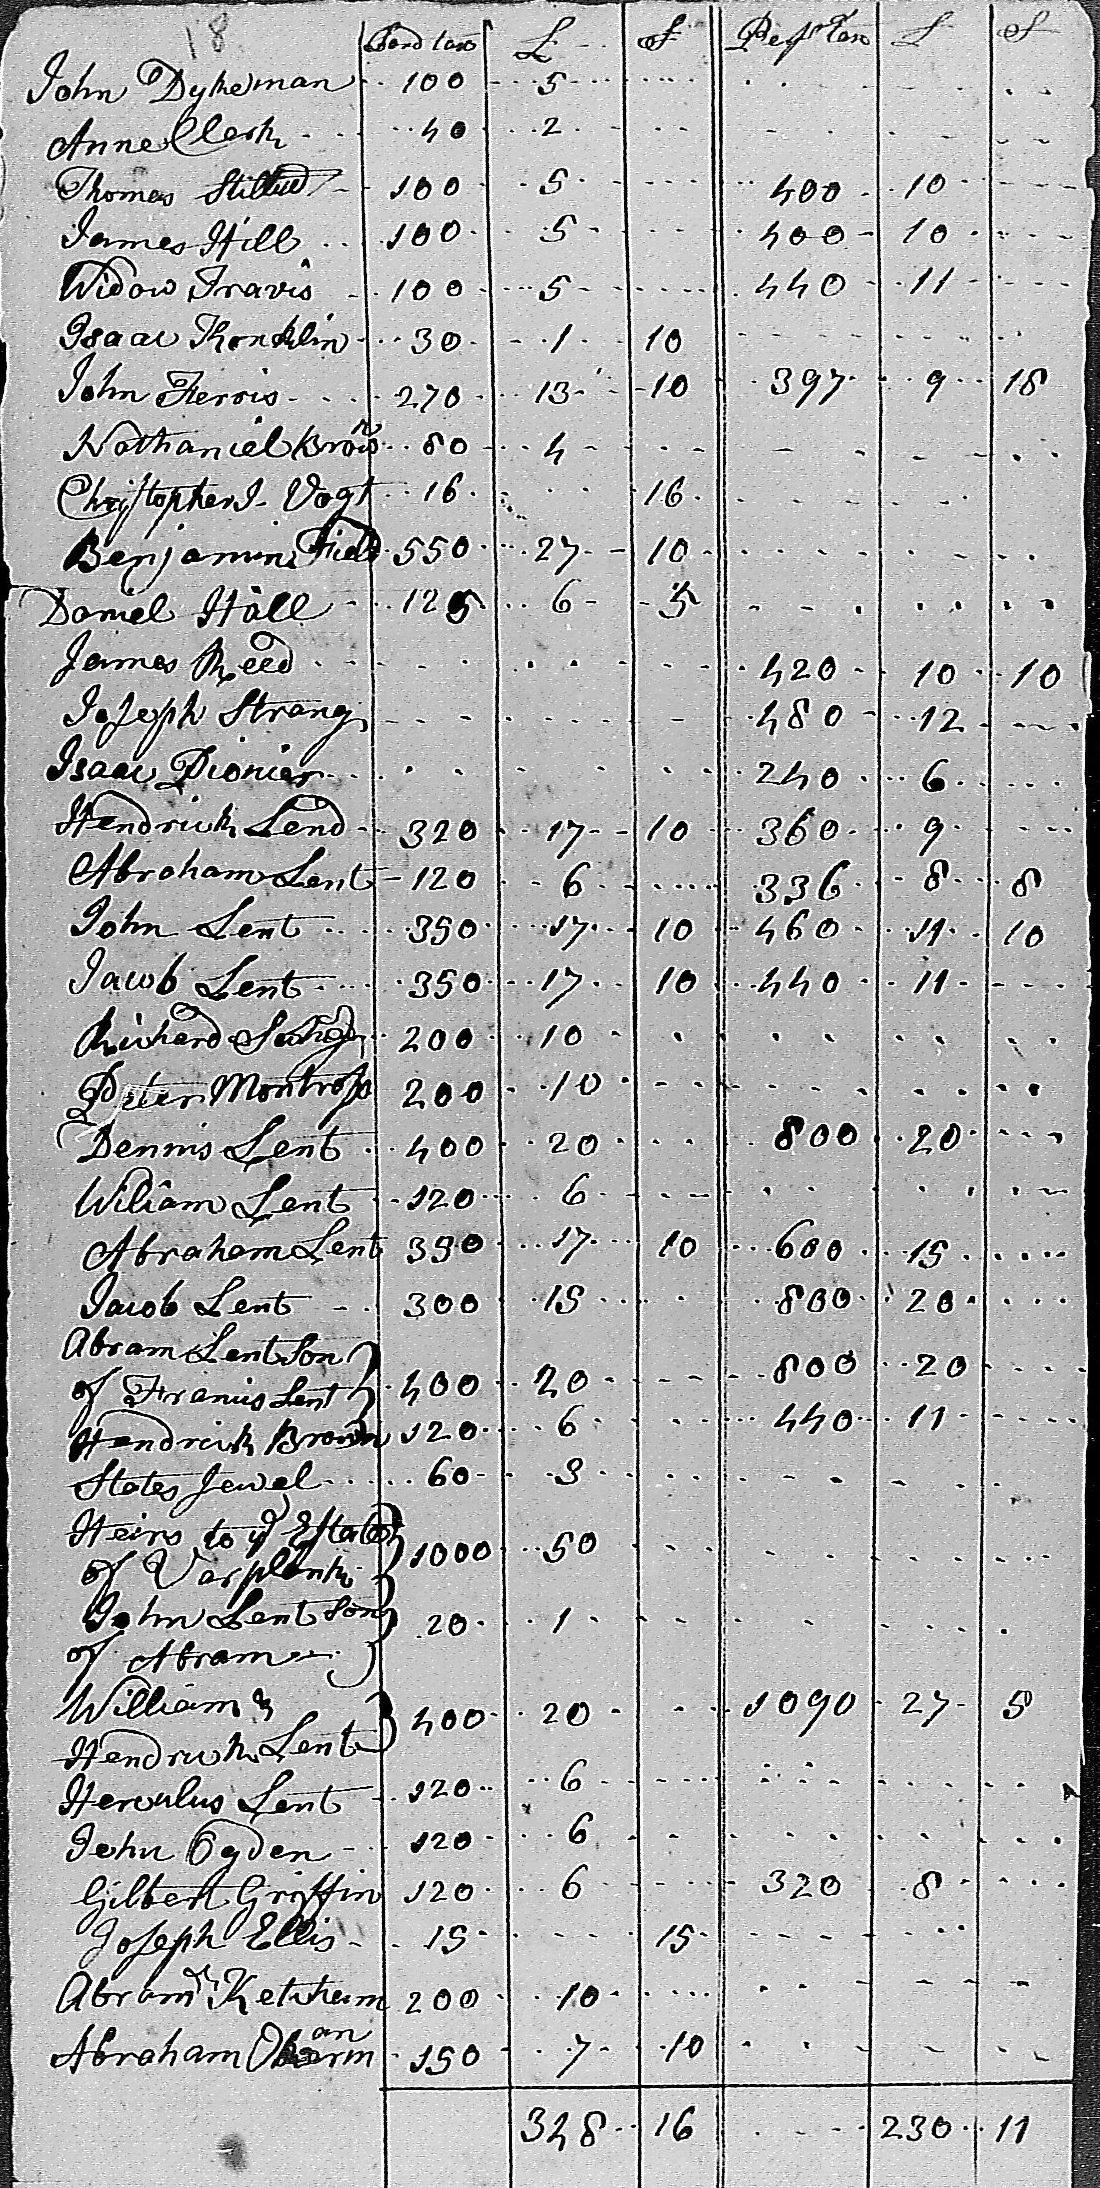 18.
Land tax £ S Persl Tax £ S
John Dykeman 100 5
Anne Clerk 40 2
Thomas 100 5 400 10
James Hill 100 5 400 10
Widow Travis 100 5 440 11
Isaac Konklin 30 1 10
John Ferris 270 13 10 397 9 18
Nathaniel Brown 80 4
Christopher I. Vogt 16 16
Benjamin Field 550 27 10
Daniel Hall 125 6 5
James Reed 420 10 10
Joseph Strang 480 12
Isaac Dionier 240 6
Hendrick Lend 320 17 10 360 9
Abraham Lent 120 6 336 8 8
John Lent 350 17 10 460 11 10
Jacob Lent 350 17 10 440 11
Richard 200 10
Peter Montross 200 10
Dennis Lent 400 20 800 20
Wiliam Lent 120 6
Abraham Lent 350 17 10 600 15
Jacob Lent 300 15 800 20
Abram Lent Son
of Francis Lent 400 20 800 20
Hendrick Brown 120 6 440 11
States Jewel 60 3
Heirs to ye Estate
of Varplank 1000 50
John Lent Son
of Abram 20 1
William &
Hendrick Lent 400 20 1090 27 5
Herculus Lent 120 6
John Ogden 120 6
Gilbert Griffin 120 6 320 8
Joseph Ellis 15 15
Abram Ketcham 200 10
Abraham 150 7 10
348 16 230 11